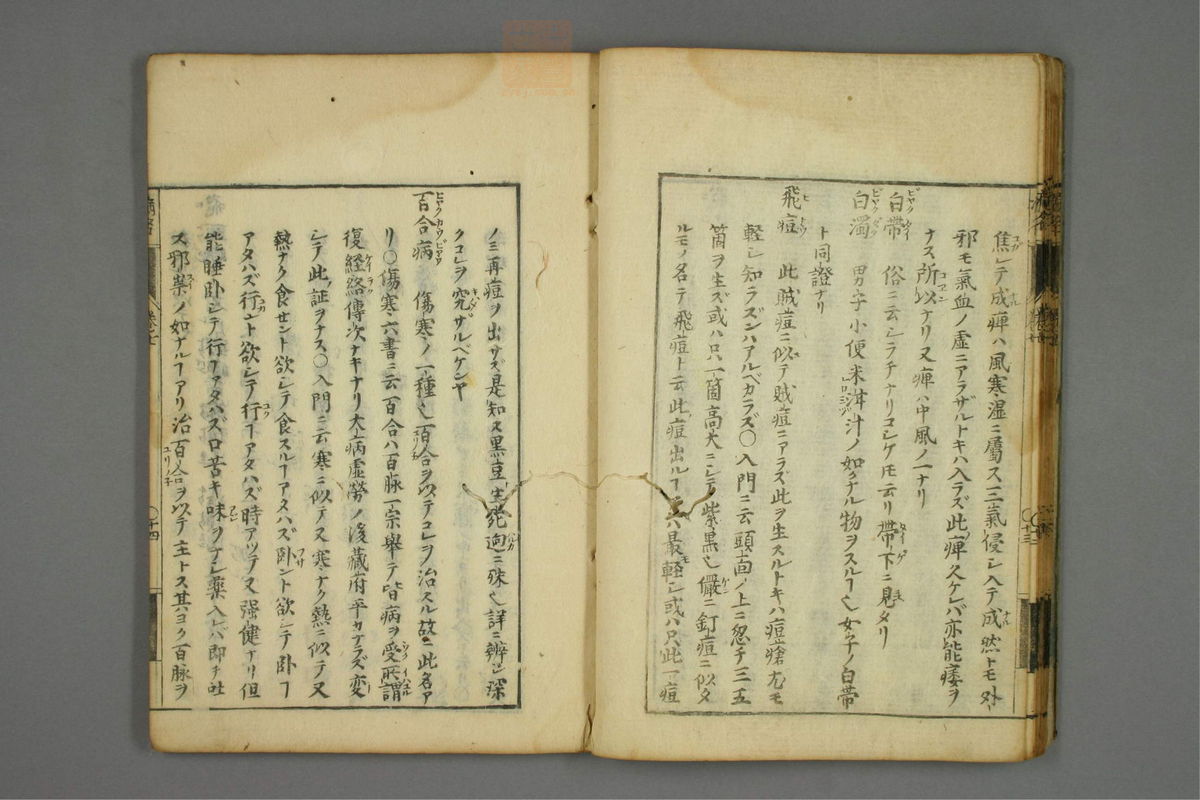 焦シテ成痺ハ風寒湿ニ屬ス三氣侵シ入テ成然トモ外
邪モ氣血ノ虚ニアラザルトキハ入ラズ此痺久ケレバ亦能痿ヲ
ナス所以ナリ又痺ハ中風ノ一ナリ
白帶 俗ニ云シラチナリコシケモ云リ帶下ニ見タリ
白濁 男子小便米泔汁ノ如クナル物ヲスルヿ也女子ノ白帶
ト同證ナリ
飛痘 此賊痘ニ似テ賊痘ニアラズ此ヲ生スルトキハ痘瘡尤モ
軽シ知ラズンハアルベカラズ〇入門ニ云頭面ノ上ニ忽チ三五
箇ヲ生ズ或ハ只一箇高大ニシテ紫黒也儼ニ釘痘ニ似タ
ルモノ名テ飛痘ト云此痘出ルヿハ最軽シ或ハ只此一痘
ノミ再痘ヲ出サズ是知ヌ黒豆生死逈ニ殊也詳ニ辨シ深
クコレヲ究サルベケンヤ
百合病 傷寒ノ一種也百合ヲ以テコレヲ治スル故ニ此名ア
リ〇傷寒六書ニ云百合ハ百脉一宗舉テ皆病ヲ受所謂
復経絡傳次ナキナリ大病虚勞ノ後藏府平カナラズ変
シテ此証ヲナス〇入門ニ云寒ニ似テ又寒ナク熱ニ似テ又
熱ナク食セント欲シテ食スルヿアタハズ卧ント欲シテ卧ヿ
アタハズ行ント欲シテ行ヿアタハズ時アツテ又強健ナリ但
能睡卧シテ行ヿアタハズ口苦キ味ヲナシ薬入レバ即チ吐
ス邪祟ノ如ナルヿアリ治百合ヲ以テ主トス其ヨク百脉ヲ
〇十四